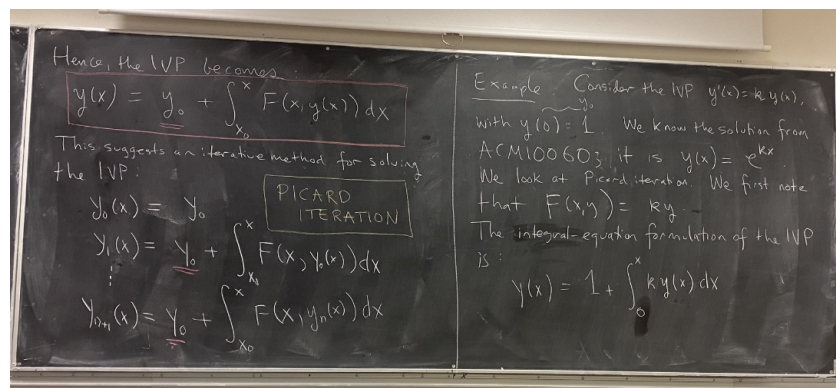 Hence, the IVP becomes:
y(x) = y₀ + ∫ₓ₀ˣ F(x, y(x)) dx
This suggests an iterative method for solving
the IVP:
PICARD
ITERATION
y₀(x) = y₀
y₁(x) = y₀ + ∫ₓ₀ˣ F(x, y₀(x)) dx
yₙ₊₁(x) = y₀ + ∫ₓ₀ˣ F(x, yₙ(x)) dx
Example Consider the IVP y'(x) = k y(x),
y₀
with y(0) = 1. We know the solution from
ACM10060; it is y(x) = eᵏˣ.
We look at Picard iteration. We first note
that F(x,y) = ky.
The integral-equation formulation of the IVP
is:
y(x) = 1 + ∫₀ˣ k y(x) dx